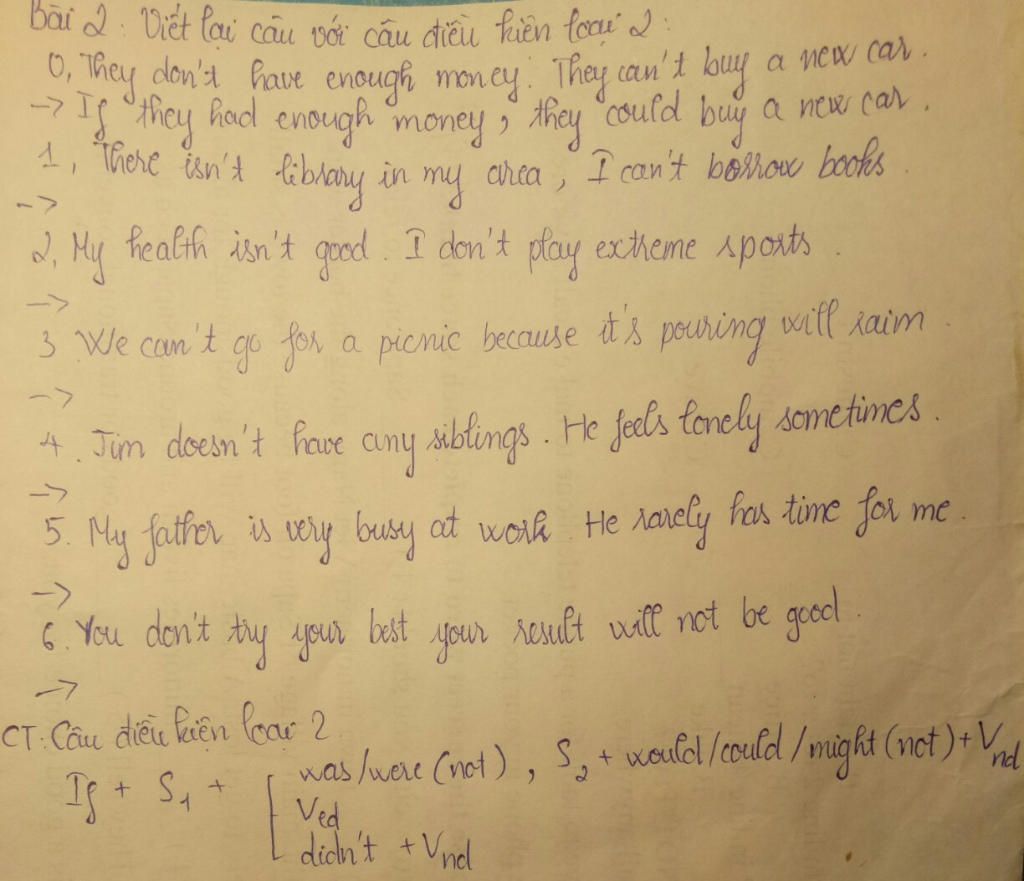 Bài 2: Viết lại câu với câu điều kiện loại 2:
0, They don't have enough money. They can't buy a new car.
-> If they had enough money, they could buy a new car.
1, There isn't library in my area, I can't borrow books.
->
2, My health isn't good. I don't play extreme sports.
->
3 We can't go for a picnic because it's pouring will raim.
->
4. Jim doesn't have any siblings. He feels lonely sometimes.
->
5. My father is very busy at work. He rarely has time for me.
->
6. You don't try your best your result will not be good.
->
CT: Câu điều kiện loại 2
If + S1 + [ was/were (not), S2 + would/could/might (not) + Vnd
Ved
didn't + Vnd